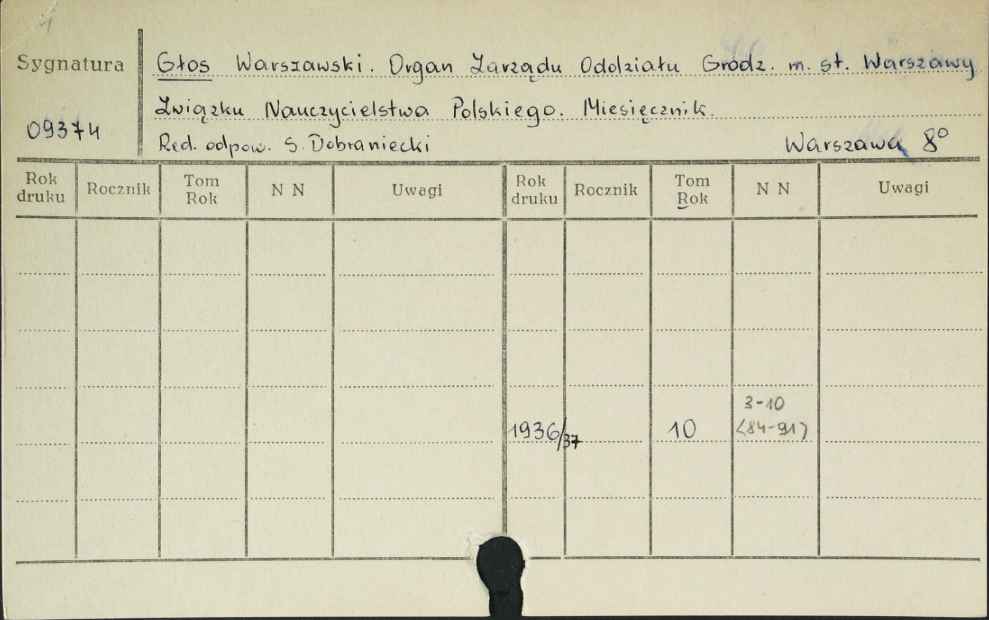 Sygnatura
09374
Głos Warszawski. Organ Zarządu Oddziału Grodz. m. st. Warszawy
Związku Nauczycielstwa Polskiego. Miesięcznik.
Red. odpow. S. Dobraniecki Warszawa 8°
Rok druku Rocznik Tom Rok N N Uwagi Rok druku Rocznik Tom Rok N N Uwagi
3-10
1936/37 10 (84-91)